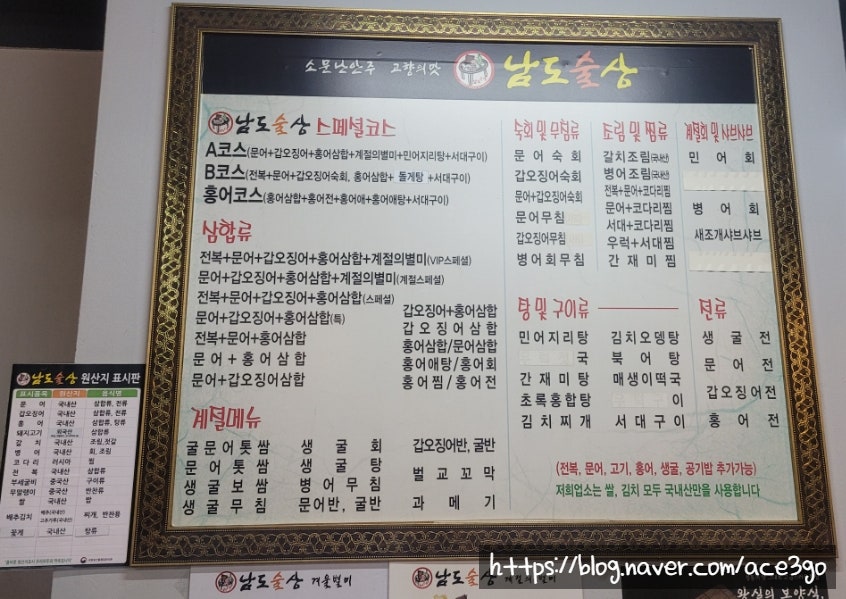 소문난안주 고향의맛 남도술상
남도술상 스페셜코스
A코스(문어+갑오징어+홍어삼합+계절의별미+민어지리탕+서대구이)
B코스(전복+문어+갑오징어숙회, 홍어삼합+ 돌게탕 +서대구이)
홍어코스(홍어삼합+홍어전+홍어애+홍어애탕+서대구이)
삼합류
전복+문어+갑오징어+홍어삼합+계절의별미(VIP스페셜)
문어+갑오징어+홍어삼합+계절의별미(계절스페셜)
전복+문어+갑오징어+홍어삼합(스페셜)
문어+갑오징어+홍어삼합(특)
전복+문어+홍어삼합
문어+홍어삼합
문어+갑오징어삼합
갑오징어+홍어삼합
갑오징어삼합
홍어삼합/문어삼합
홍어애탕/홍어회
홍어찜/홍어전
계절메뉴
굴문어톳쌈
문어톳쌈
생굴보쌈
생굴무침
생굴회
생굴탕
병어무침
문어반, 굴반
갑오징어반, 굴반
벌교꼬막
과메기
숙회 및 무침류
문어숙회
갑오징어숙회
문어+갑오징어숙회
문어무침
갑오징어무침
병어회무침
조림 및 찜류
갈치조림(국내산)
병어조림(국내산)
전복+문어+코다리찜
문어+코다리찜
서대+코다리찜
우럭+서대찜
간재미찜
계절회 및 샤브샤브
민어회
병어회
새조개샤브샤브
탕 및 구이류
민어지리탕
국
간재미탕
초록홍합탕
김치찌개
김치오뎅탕
북어탕
매생이떡국
이
서대구이
전류
생굴전
문어전
갑오징어전
홍어전
(전복, 문어, 고기, 홍어, 생굴, 공기밥 추가가능)
저희업소는 쌀, 김치 모두 국내산만을 사용합니다
남도술상 원산지 표시판
표시품목 원산지 음식명
문어 국내산 삼합류, 전류
갑오징어 국내산 삼합류, 전류
홍어 국내산 삼합류, 탕류
돼지고기 외국산 삼합류
갈치 국내산 조림,젓갈
병어 국내산 회, 조림
코다리 러시아 찜
전복 국내산 삼합류
부세굴비 중국산 구이류
무말랭이 중국산 반찬류
쌀 국내산 밥
배추김치 배추(국내산) 고춧가루(국내산) 찌개, 반찬용
꽃게 국내산 탕류
남도술상 겨울별미
남도술상
왕실의 보양식,
https://blog.naver.com/ace3go